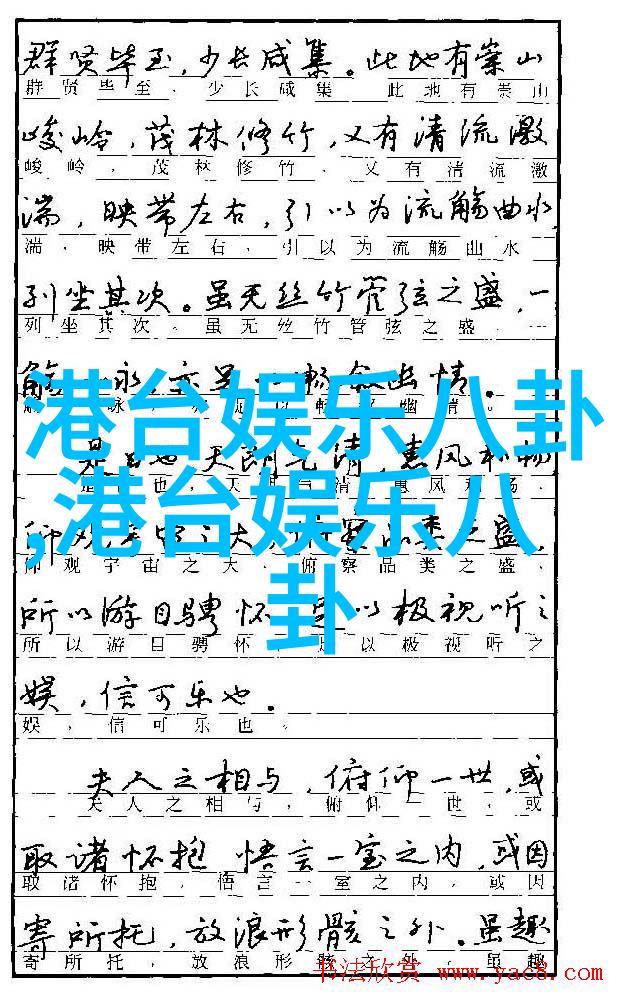 群贤毕至,少长咸集。此地有崇山
群贤毕至、少长咸集。此地有崇山
峻岭,茂林修竹,又有清流激
峻岭,茂林修竹、又有清流激
湍,映带左右,引以为流觞曲水,
湍,映带左右,引以为流觞曲水
列坐其次。虽无丝竹管弦之盛,一
列坐其次。虽无丝竹管弦之盛,一
情。
港台娱乐八卦
,港台娱乐八
卦
惠风和畅
惠风和畅,
品类之盛,
仰观宇宙之大,俯察品类之盛,
所以游目骋怀 以极视听之
所以游目骋怀 以极视听之
娱,信可乐也。
娱,信可乐也。
夫人之相与,俯仰一世,或
夫人之相与,俯仰一世,或
取诸怀抱 悟言一室之内,或因
取诸怀抱,悟言一室之内,或因
寄所托,放浪形骸之外。虽趣
寄所托,放浪形骸之外。虽趣
书法欣赏 www.yac8.com